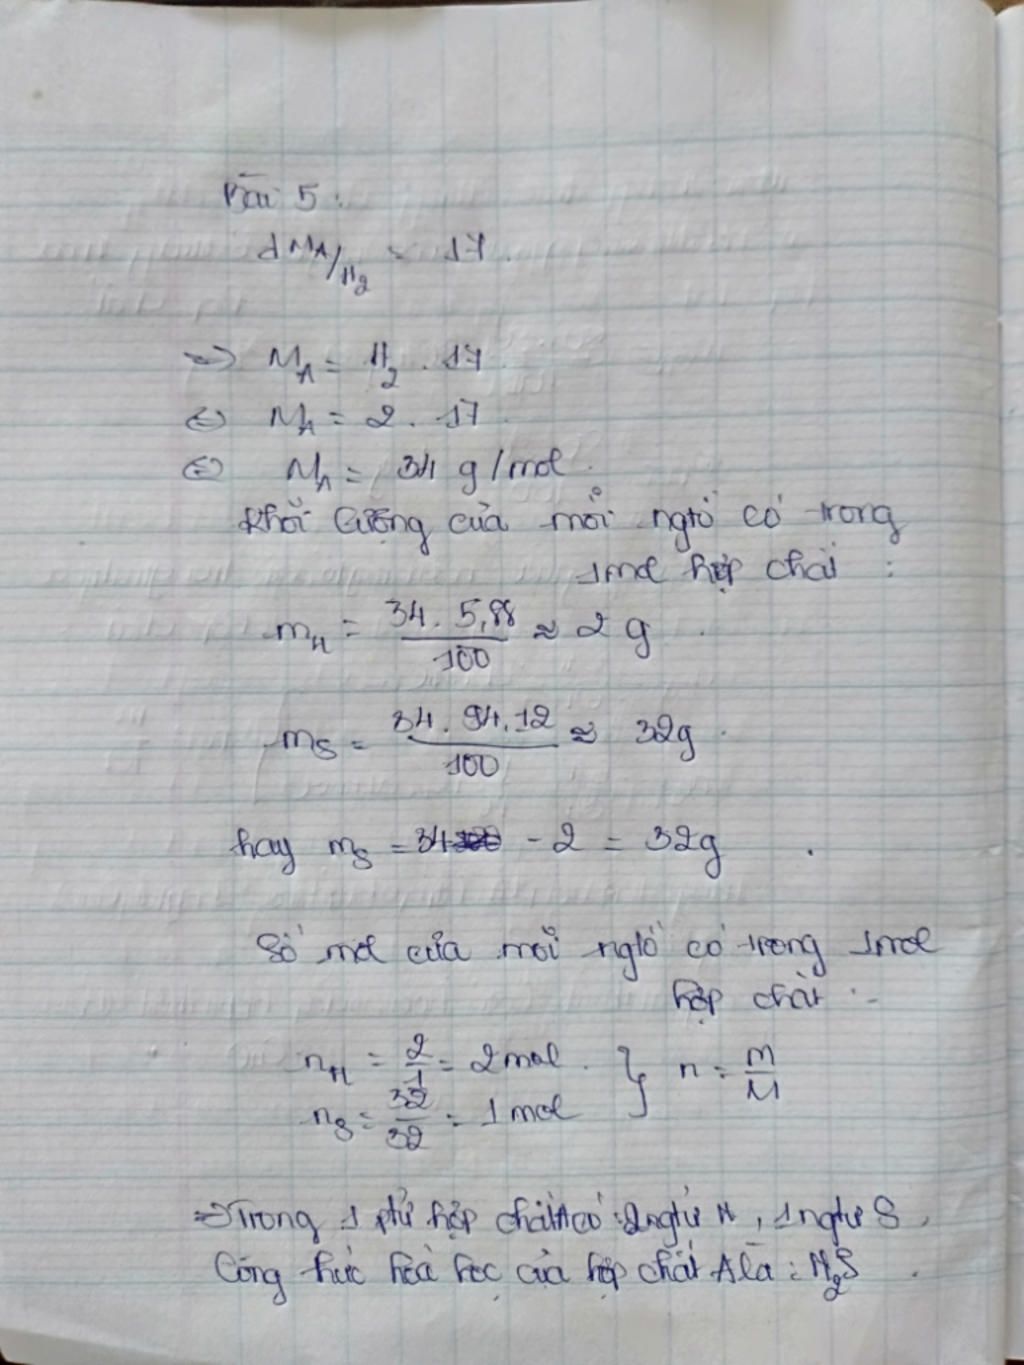 Bài 5:
d MA/H2 = 17.
=> MA = H2 . 17.
<=> MA = 2. 17.
<=> MA = 34 g/mol.
Khối lượng của mỗi ngtố có trong
1mol hợp chất :
mH = 34. 5,88 / 100 ≈ 2 g.
mS = 34. 94,12 / 100 ≈ 32g.
hay mS = 34 - 2 = 32g.
Số mol của mỗi ngtố có trong 1mol
hợp chất :
nH = 2/1 = 2mol. } n = m/M
nS = 32/32 = 1mol
=> Trong 1 ptử hợp chất A có : 2 ngtử H, 1 ngtử S.
Công thức hoá học của hợp chất A là : H2S.